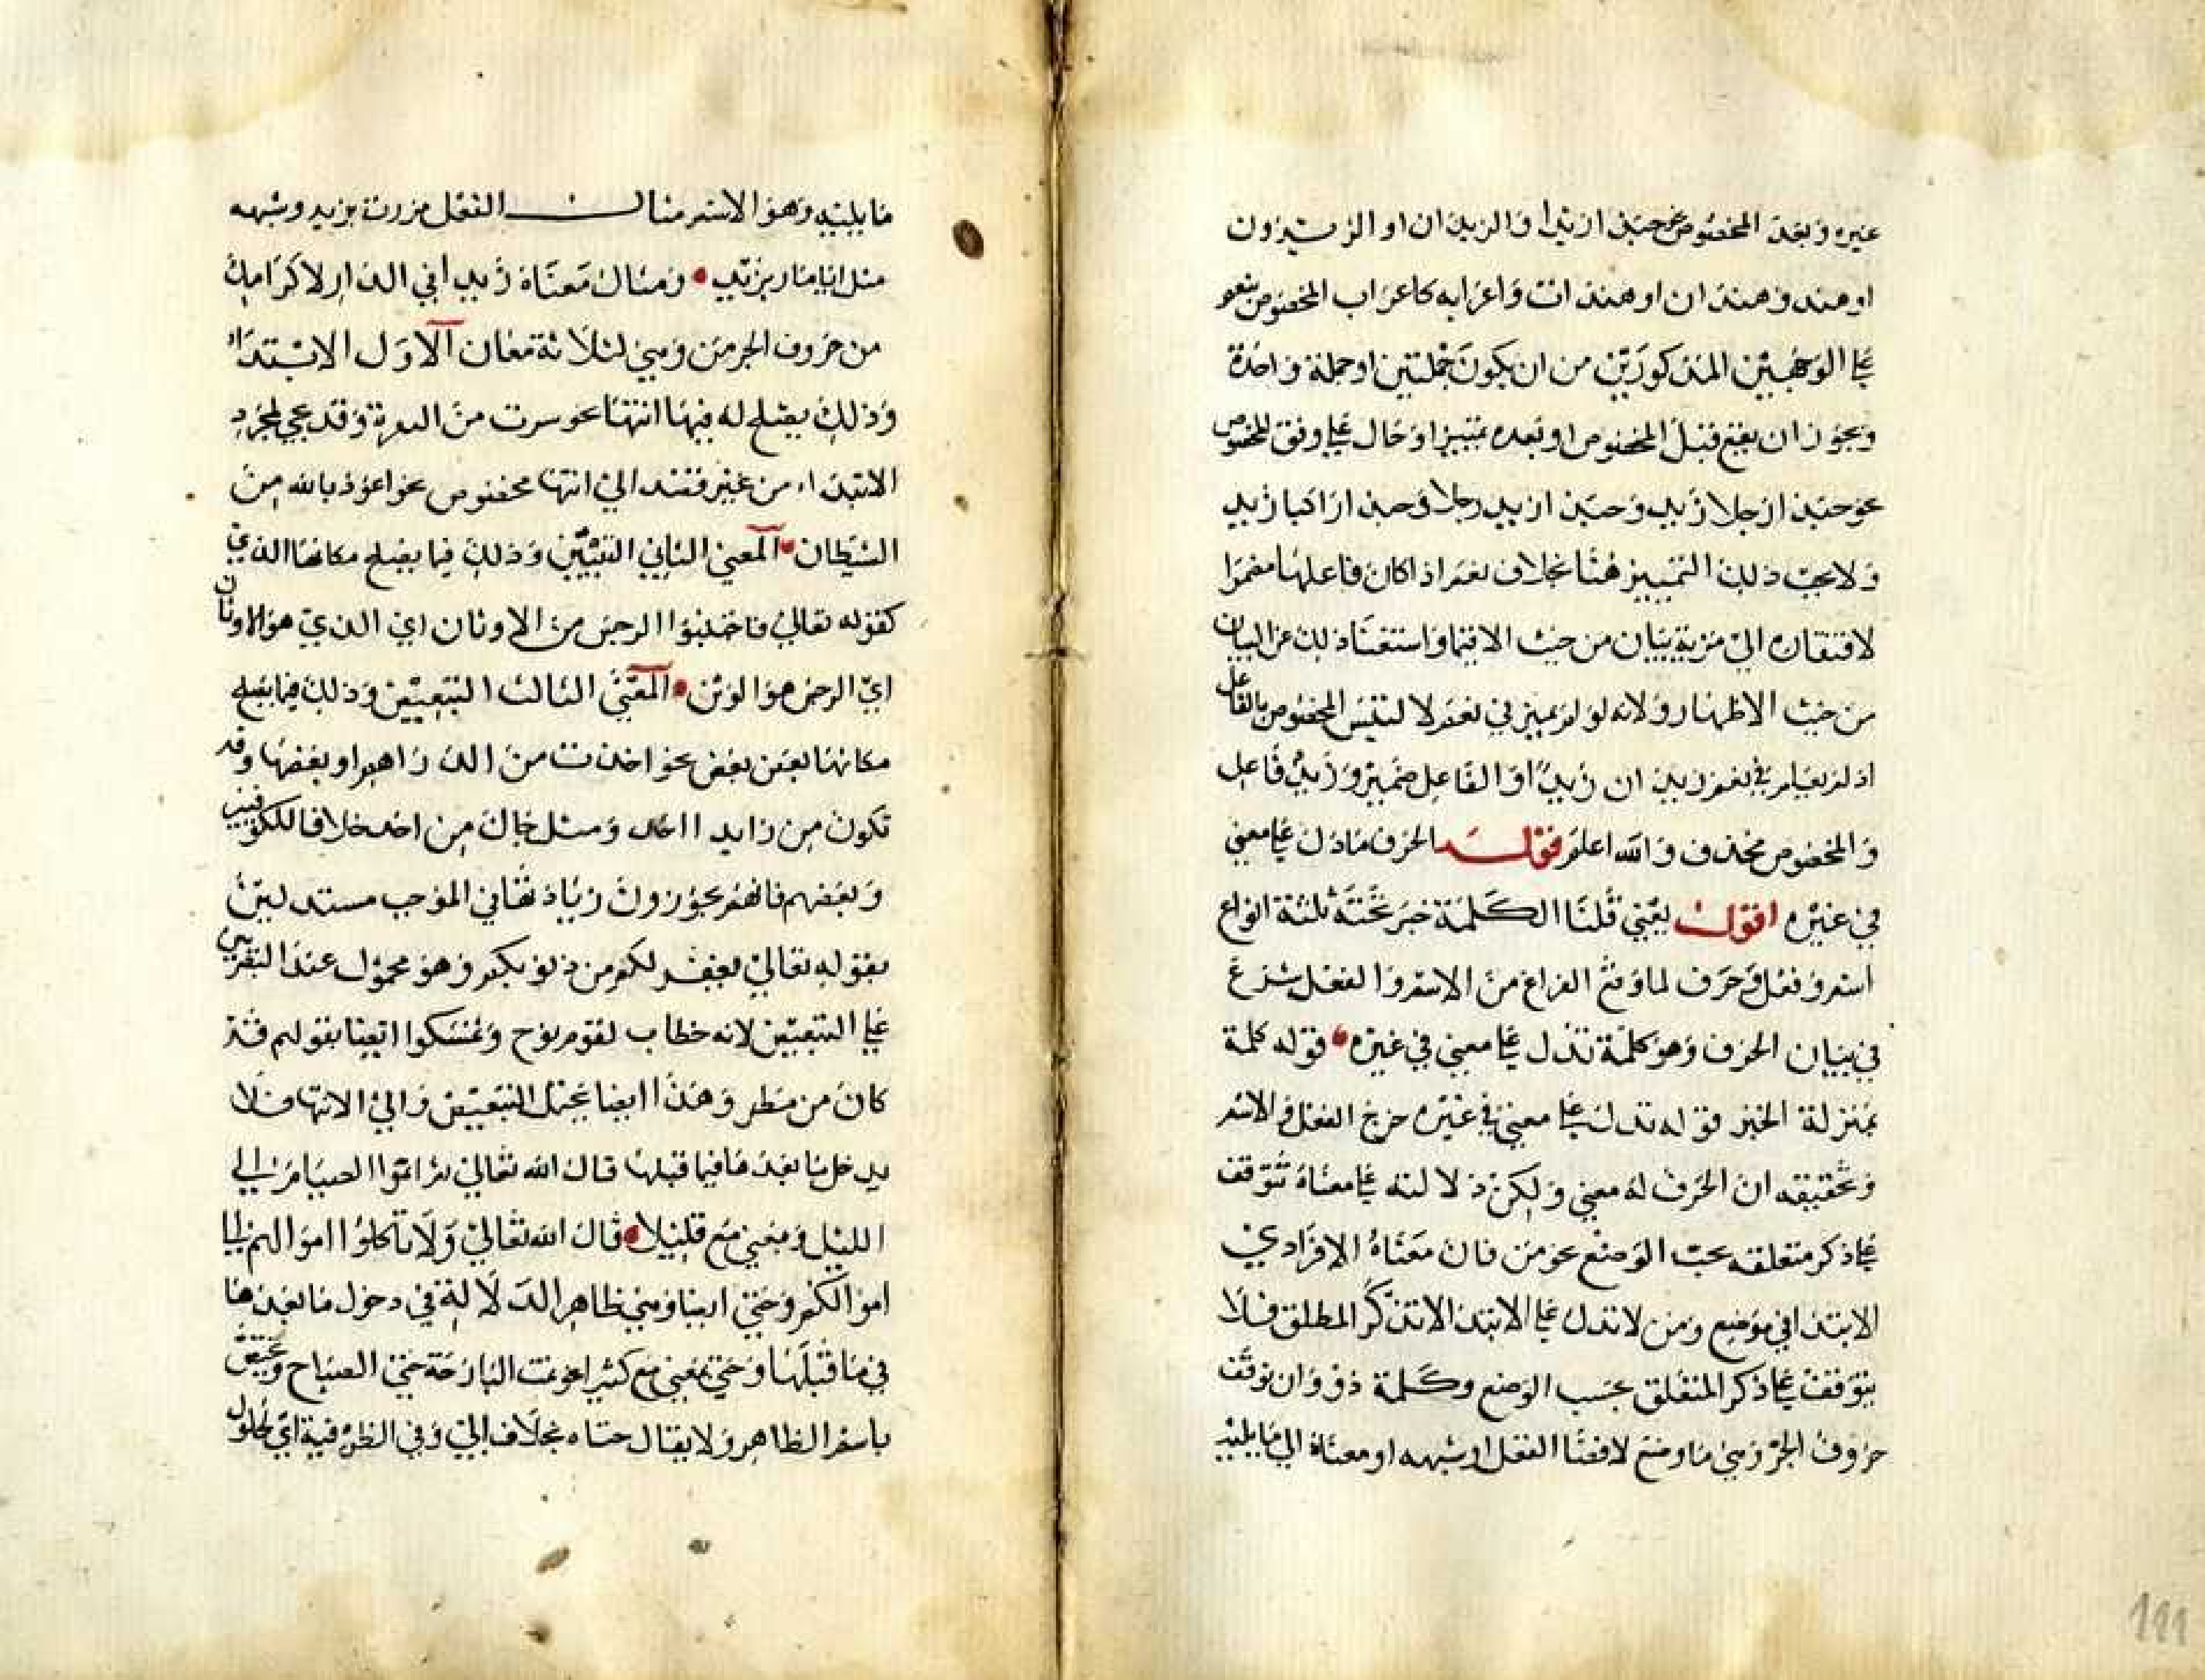 غيره وبعد المخصوص نحو حبذا زيد او الزيدان او الزيدون
او هند وهندان او هندات واعرابه كاعراب المخصوص نعم
على الوجهين المذكورين من ان يكون جملتين او جملة واحدة
ويجوز ان يقع قبل المخصوص او بعده تمييز او حال على وفق المخصوص
نحو حبذا رجلا زيد وحبذا زيد رجلا وحبذا راكبا زيد
ولا يجب ذلك التمييز هنا بخلاف نعم اذا كان فاعلها مضمرا
لافتقاره الى مزية بيان من حيث واستغنا ذلك عن البيان
من حيث الاظهار ولانه لو لم يميز في نعم لالتبس المخصوص بالفاعل
اذ لم يعلم في نعم زيد ان زيدا او الفاعل ضمير وزيد فاعل
والمخصوص محذوف والله اعلم قوله الحرف ما دل على معنى
في غيره اقول يعني قلنا الكلمة خبر تحته ثلثة انواع
اسم وفعل وحرف لما وقع الفراغ من الاسم والفعل شرع
في بيان الحرف وهو كلمة تدل على معنى في غيره قوله كلمة
بمنزلة الخبز قوله تدل على معنى في غيره خرج الفعل والاسم
وتحقيقه ان الحرف له معنى ولكن دلالته على معناه تتوقف
على ذكر متعلقه بحسب الوضع نحو من فان معناه الافرادي
الابتدا في موضع ومن لا تدل على الابتدا الا بذكر المطلق فلا
يتوقف على ذكر المتعلق بحسب الوضع وكلمة ذو وان توقف
حروف الجر وهي ما وضع لافضا الفعل او شبهه او معناه الى ما يليه
ما يليه وهو الاسم مثال الفعل مررت بزيد وشبهه
مثل انا مار بزيد ومثال معناه زيد في الدار لاكرامك
من حروف الجر من وهي لثلاثة معان الاول الابتداء
وذلك يصلح له فيها انتها نحو سرت من البصرة وقد يجي لمجرد
الابتداء من غير قصد الى انتها مخصوص نحو اعوذ بالله من
الشيطان المعنى الثاني التبيين وذلك فيما يصلح مكانها الذي
كقوله تعالى فاجتنبوا الرجس من الاوثان اي الذي هو الاوثان
اي الرجس هو الوثن المعنى الثالث التبعيض وذلك فيما يصلح
مكانها لفظ بعض نحو اخذت من الدراهم او بعضها وقد
تكون من زايد ومثل جاك من احد خلافا للكوفيين
وبعضهم فانهم يجوزون زيادتها في الموجب مستدلين
بقوله تعالى يغفر لكم من ذنوبكم وهو محمول عند البصريين
على التبعيض لانه خطاب لقوم نوح وتمسكوا ايضا بقولهم قد
كان من مطر وهذا ايضا يحتمل التبعيض والى الانتها فلا
يدخل ما بعدها فيما قبلها قال الله تعالى ثم اتموا الصيام الى
الليل وبمعنى مع قليلا قال الله تعالى ولا تاكلوا اموالهم الى
اموالكم وحتى ايضا وهي ظاهر الدلالة في دخول ما بعدها
في ما قبلها وحتى بمعنى مع كثيرا نحو نمت البارحة حتى الصباح وتختص
باسم الظاهر ولا يقال حتاه بخلاف الى وفي الظرفية اي لحلول
111